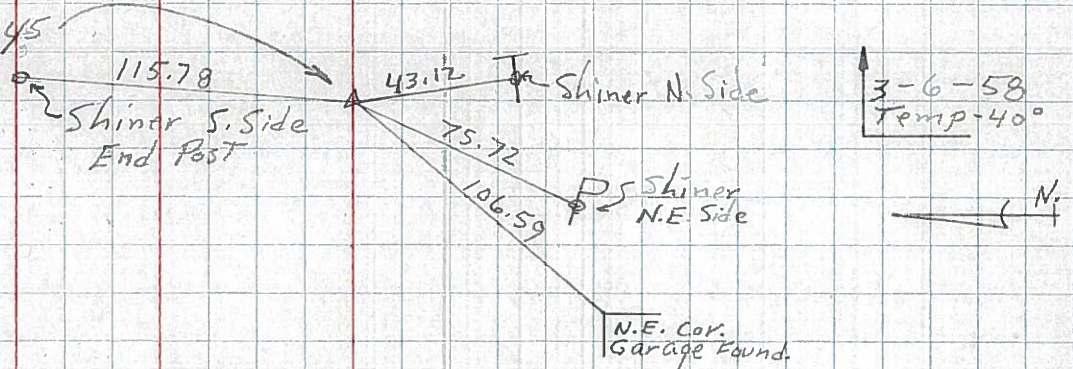 45
115.78
Shiner S. Side
End Post
43.12
T
Shiner N. Side
75.72
P
Shiner
N.E. Side
106.59
N.E. Cor.
Garage Found.
3-6-58
Temp-40°
N.